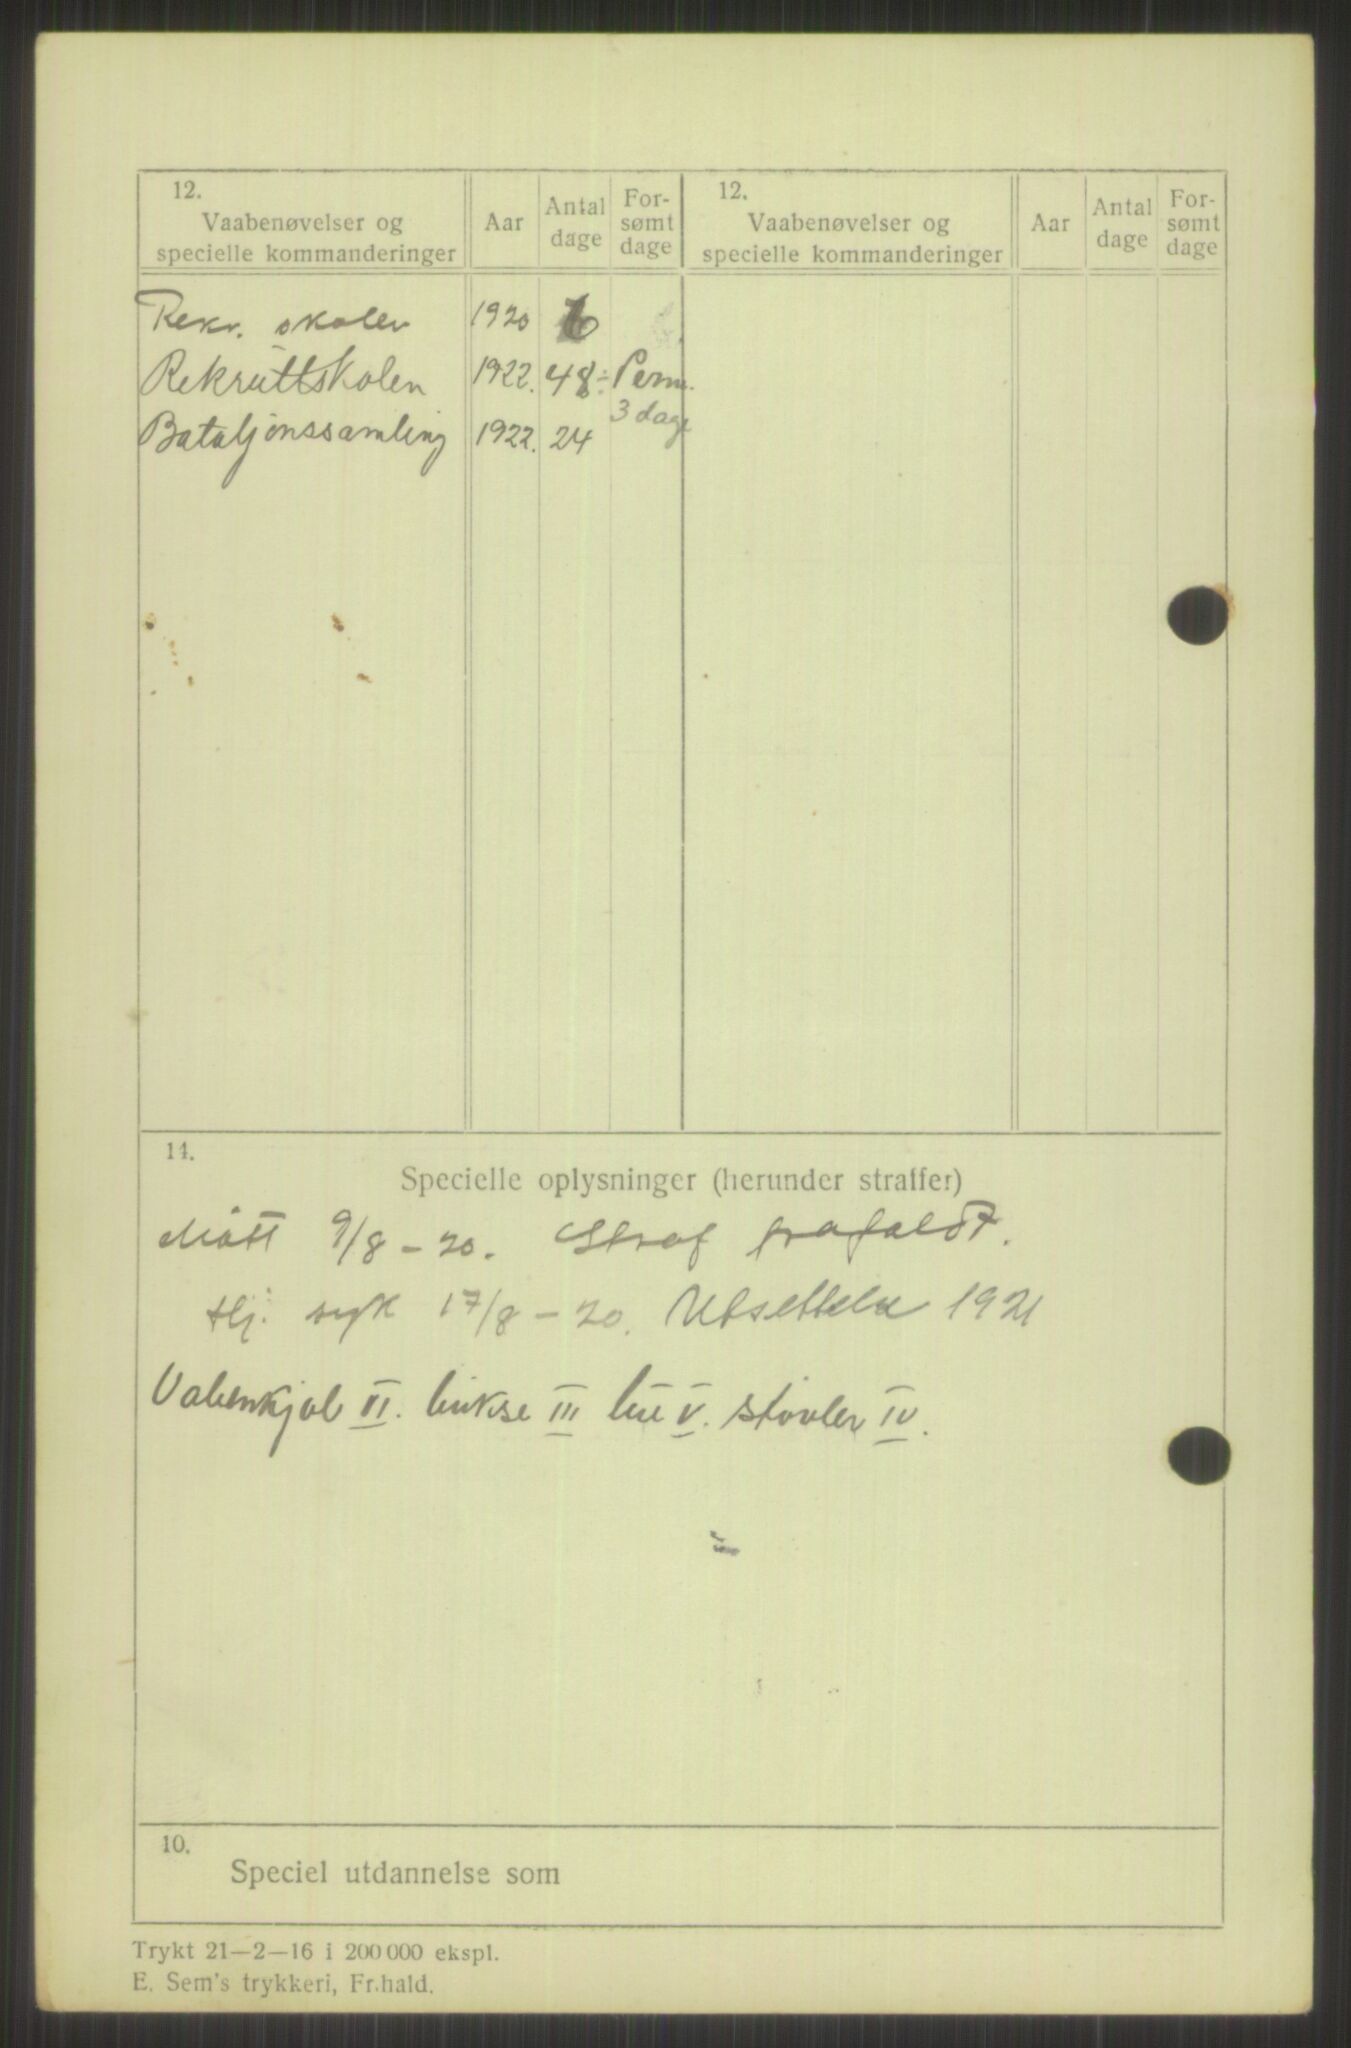 12.
Vaabenøvelser og
specielle kommanderinger
Aar
Antal
dage
For-
sømt
dage
12.
Vaabenøvelser og
specielle kommanderinger
Aar
Antal
dage
For-
sømt
dage
Rekr. skolen 1920
Rekruttskolen 1922. 48 ÷ Perm.
3 dage
Bataljonssamling 1922. 24
14.
Specielle oplysninger (herunder straffer)
Møtt 9/8 – 20. Straf frafaldt.
Hj. syk 17/8 – 20. Utsettelse 1921
Vabenkjol VI. bukse III lue V. støvler IV.
10.
Speciel utdannelse som
Trykt 21—2—16 i 200 000 ekspl.
E. Sem's trykkeri, Fr.hald.